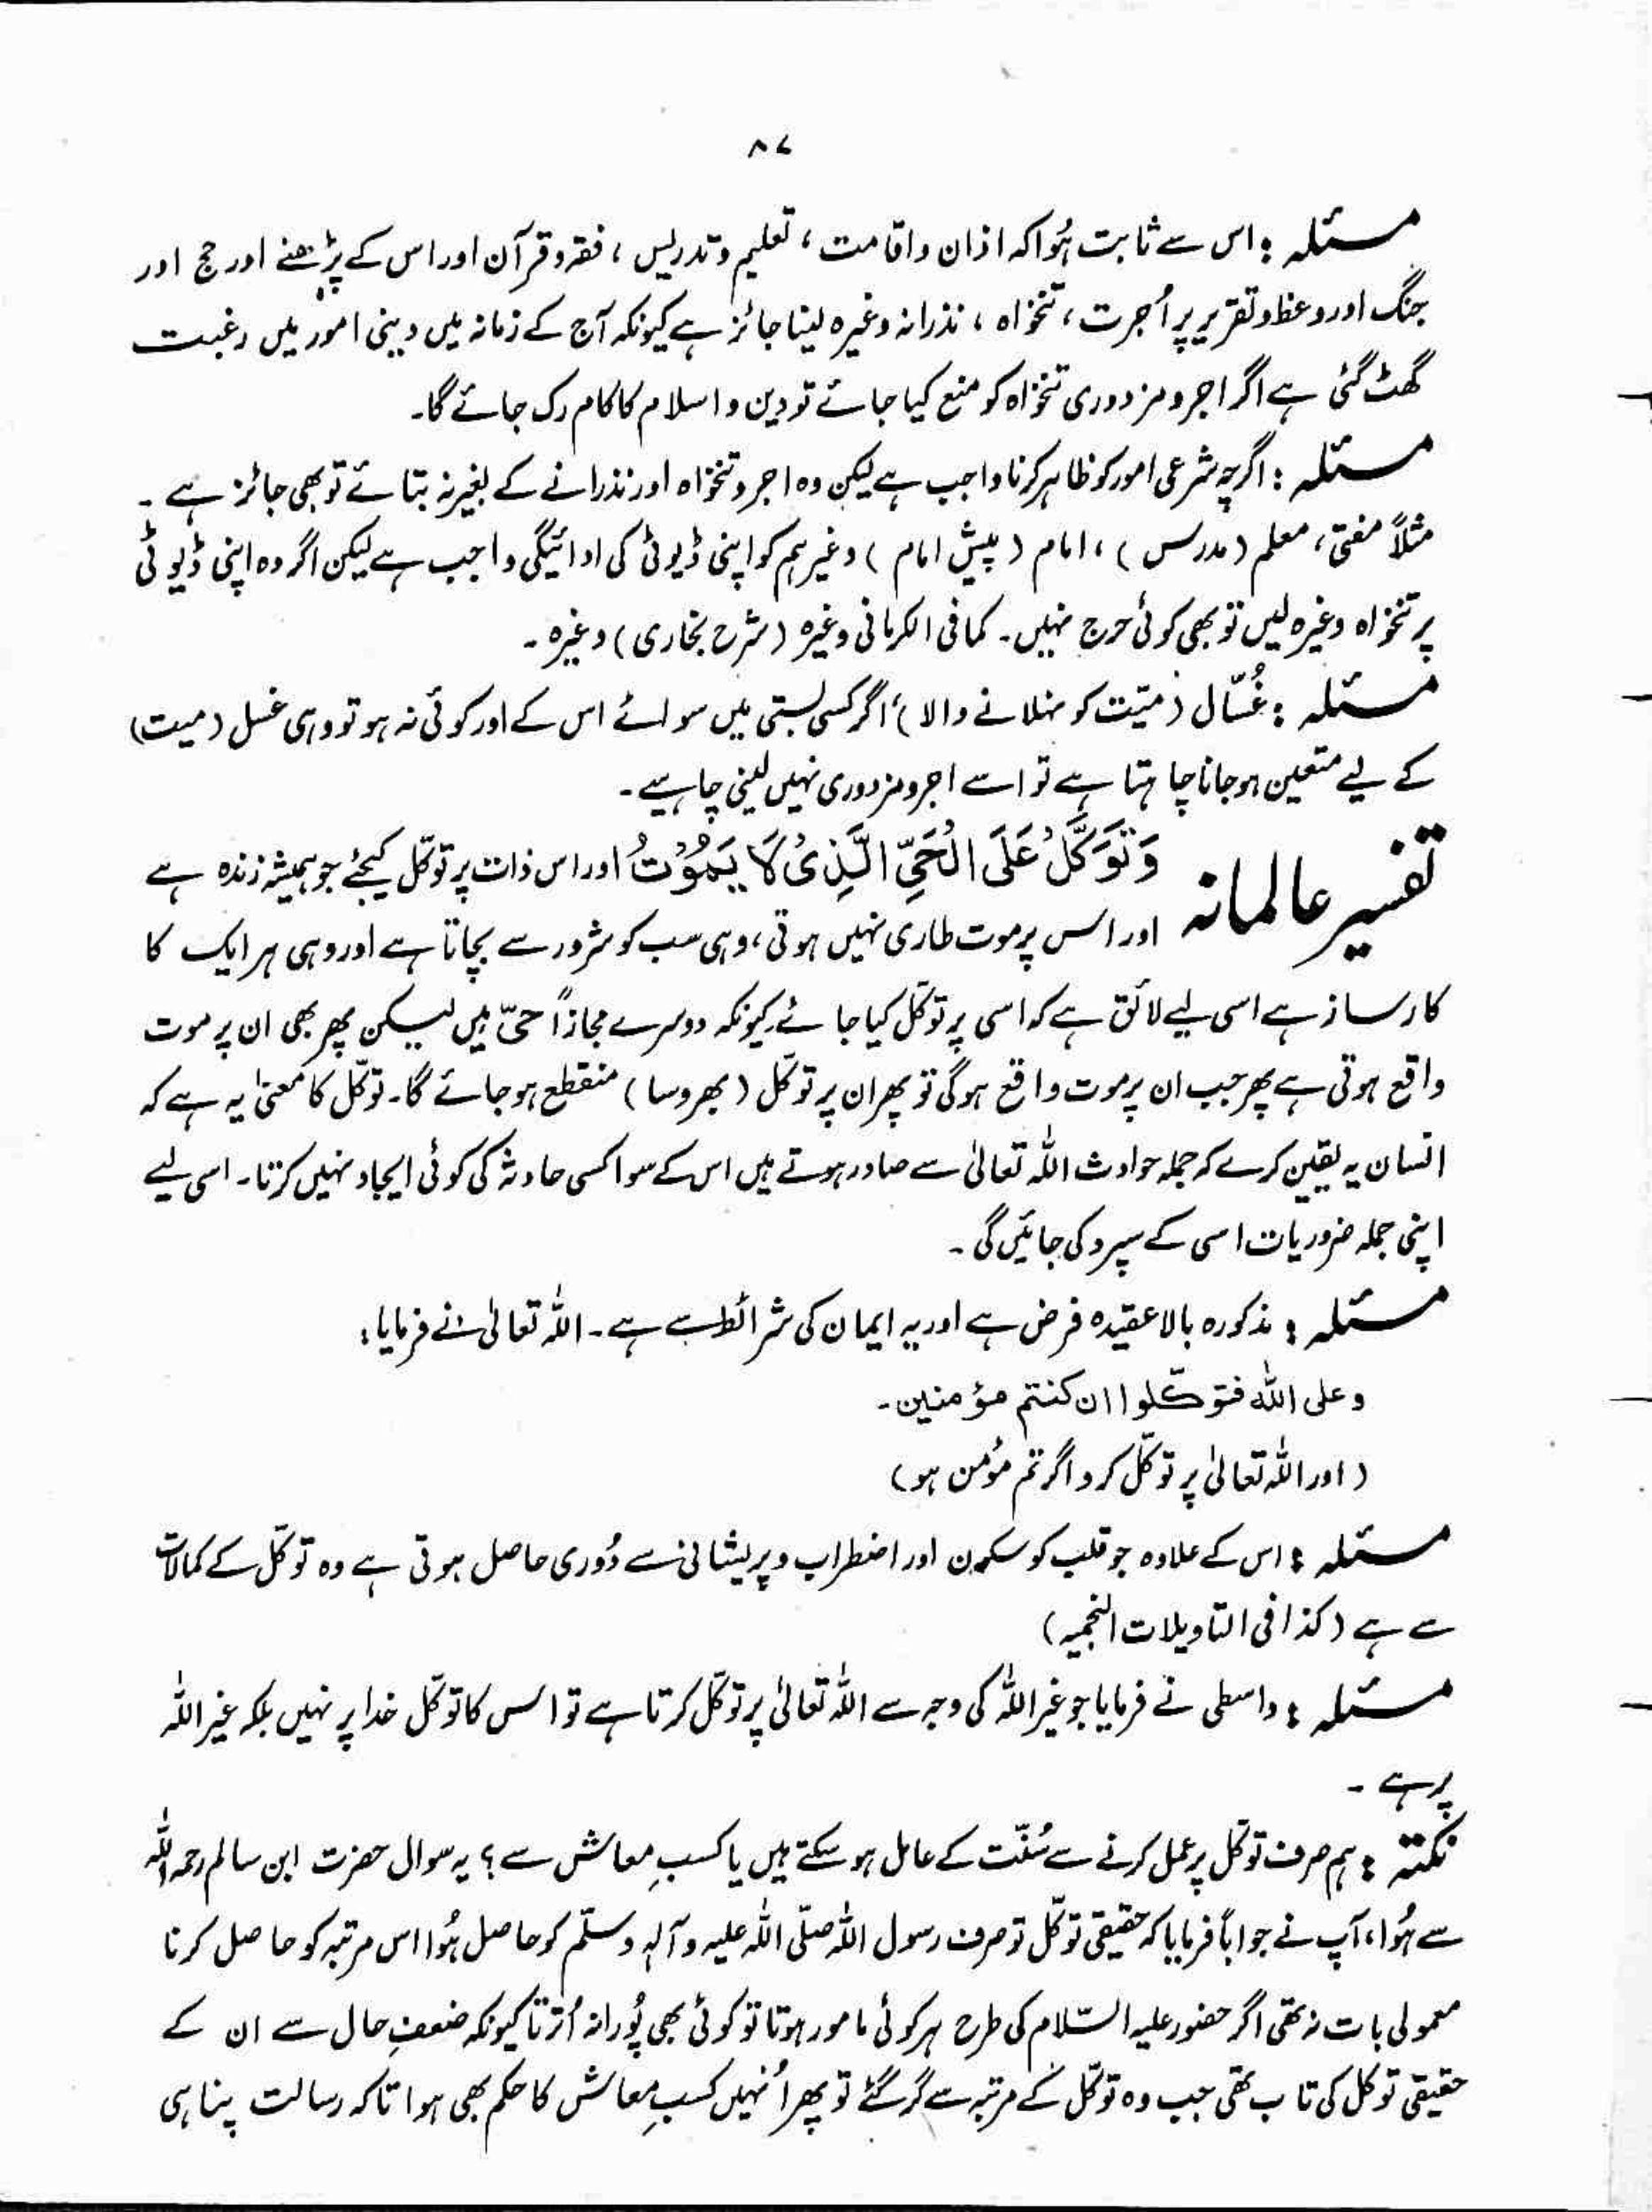 ۸۷
مسئلہ : اس سے ثابت ہُوا کہ اذان و اقامت ، تعلیم و تدریس ، فقہ و قرآن اور اس کے پڑھنے اور حج اور
جنگ اور وعظ و تقریر پر اُجرت ، تنخواہ ، نذرانہ وغیرہ لینا جائز ہے کیونکہ آج کے زمانہ میں دینی امور میں رغبت
گھٹ گئی ہے اگر اجر و مزدوری تنخواہ کو منع کیا جائے تو دین و اسلام کا کام رک جائے گا۔
مسئلہ : اگرچہ شرعی امور کو ظاہر کرنا واجب ہے لیکن وہ اجر و تنخواہ اور نذرانے کے بغیر نہ بتائے تو بھی جائز ہے ۔
مثلاً مفتی ، معلم (مدرس) ، امام (پیش امام) وغیرہم کو اپنی ڈیوٹی کی ادائیگی واجب ہے لیکن اگر وہ اپنی ڈیوٹی
پر تنخواہ وغیرہ لیں تو بھی کوئی حرج نہیں ۔ کما فی الکرمانی وغیرہ (شرح بخاری) وغیرہ ۔
مسئلہ : غُسّال (میّت کو نہلانے والا) اگر کسی بستی میں سوائے اس کے اور کوئی نہ ہو تو وہی غسل (میت)
کے لیے متعین ہو جانا چاہتا ہے تو اسے اجر و مزدوری نہیں لینی چاہیے ۔
تفسیر عالمانہ وَتَوَكَّلْ عَلَى الْحَيِّ الَّذِىْ لَا يَمُوْتُ اور اس ذات پر توکّل کیجئے جو ہمیشہ زندہ ہے
اور اس پر موت طاری نہیں ہوتی ، وہی سب کو شرور سے بچاتا ہے اور وہی ہر ایک کا
کارساز ہے اسی لیے لائق ہے کہ اسی پر توکّل کیا جائے کیونکہ دوسرے مجازاً حیّ ہیں لیکن پھر بھی ان پر موت
واقع ہوتی ہے پھر جب ان پر موت واقع ہوگی تو پھر ان پر توکّل (بھروسا) منقطع ہو جائے گا ۔ توکّل کا معنیٰ یہ ہے کہ
انسان یہ یقین کرے کہ جملہ حوادث اللہ تعالیٰ سے صادر ہوتے ہیں اس کے سوا کسی حادثہ کی کوئی ایجاد نہیں کرتا ۔ اسی لیے
اپنی جملہ ضروریات اسی کے سپرد کی جائیں گی ۔
مسئلہ : مذکورہ بالا عقیدہ فرض ہے اور یہ ایمان کی شرائط سے ہے ۔ اللہ تعالیٰ نے فرمایا :
وعلی اللہ فتوکّلوا ان کنتم مؤمنین ۔
(اور اللہ تعالیٰ پر توکّل کرو اگر تم مؤمن ہو)
مسئلہ : اس کے علاوہ جو قلب کو سکون اور اضطراب و پریشانی سے دُوری حاصل ہوتی ہے وہ توکّل کے کمالات
سے ہے (کذا فی التاویلات النجمیہ)
مسئلہ : واسطی نے فرمایا جو غیر اللہ کی وجہ سے اللہ تعالیٰ پر توکّل کرتا ہے تو اس کا توکّل خدا پر نہیں بلکہ غیر اللہ
پر ہے ۔
نکتہ : ہم صرف توکّل پر عمل کرنے سے سُنّت کے عامل ہو سکتے ہیں یا کسبِ معاش سے ؟ یہ سوال حضرت ابن سالم رحمہ اللہ
سے ہُوا ، آپ نے جواباً فرمایا کہ حقیقی توکّل تو صرف رسول اللہ صلّی اللہ علیہ وآلہٖ وسلّم کو حاصل ہُوا اس مرتبہ کو حاصل کرنا
معمولی بات نہ تھی اگر حضور علیہ السّلام کی طرح ہر کوئی مامور ہوتا تو کوئی بھی پُورا نہ اُترتا کیونکہ ضعفِ حال سے ان کے
حقیقی توکل کی تاب تھی جب وہ توکّل کے مرتبہ سے گر گئے تو پھر اُنہیں کسبِ معاش کا حکم بھی ہوا تاکہ رسالت پناہی